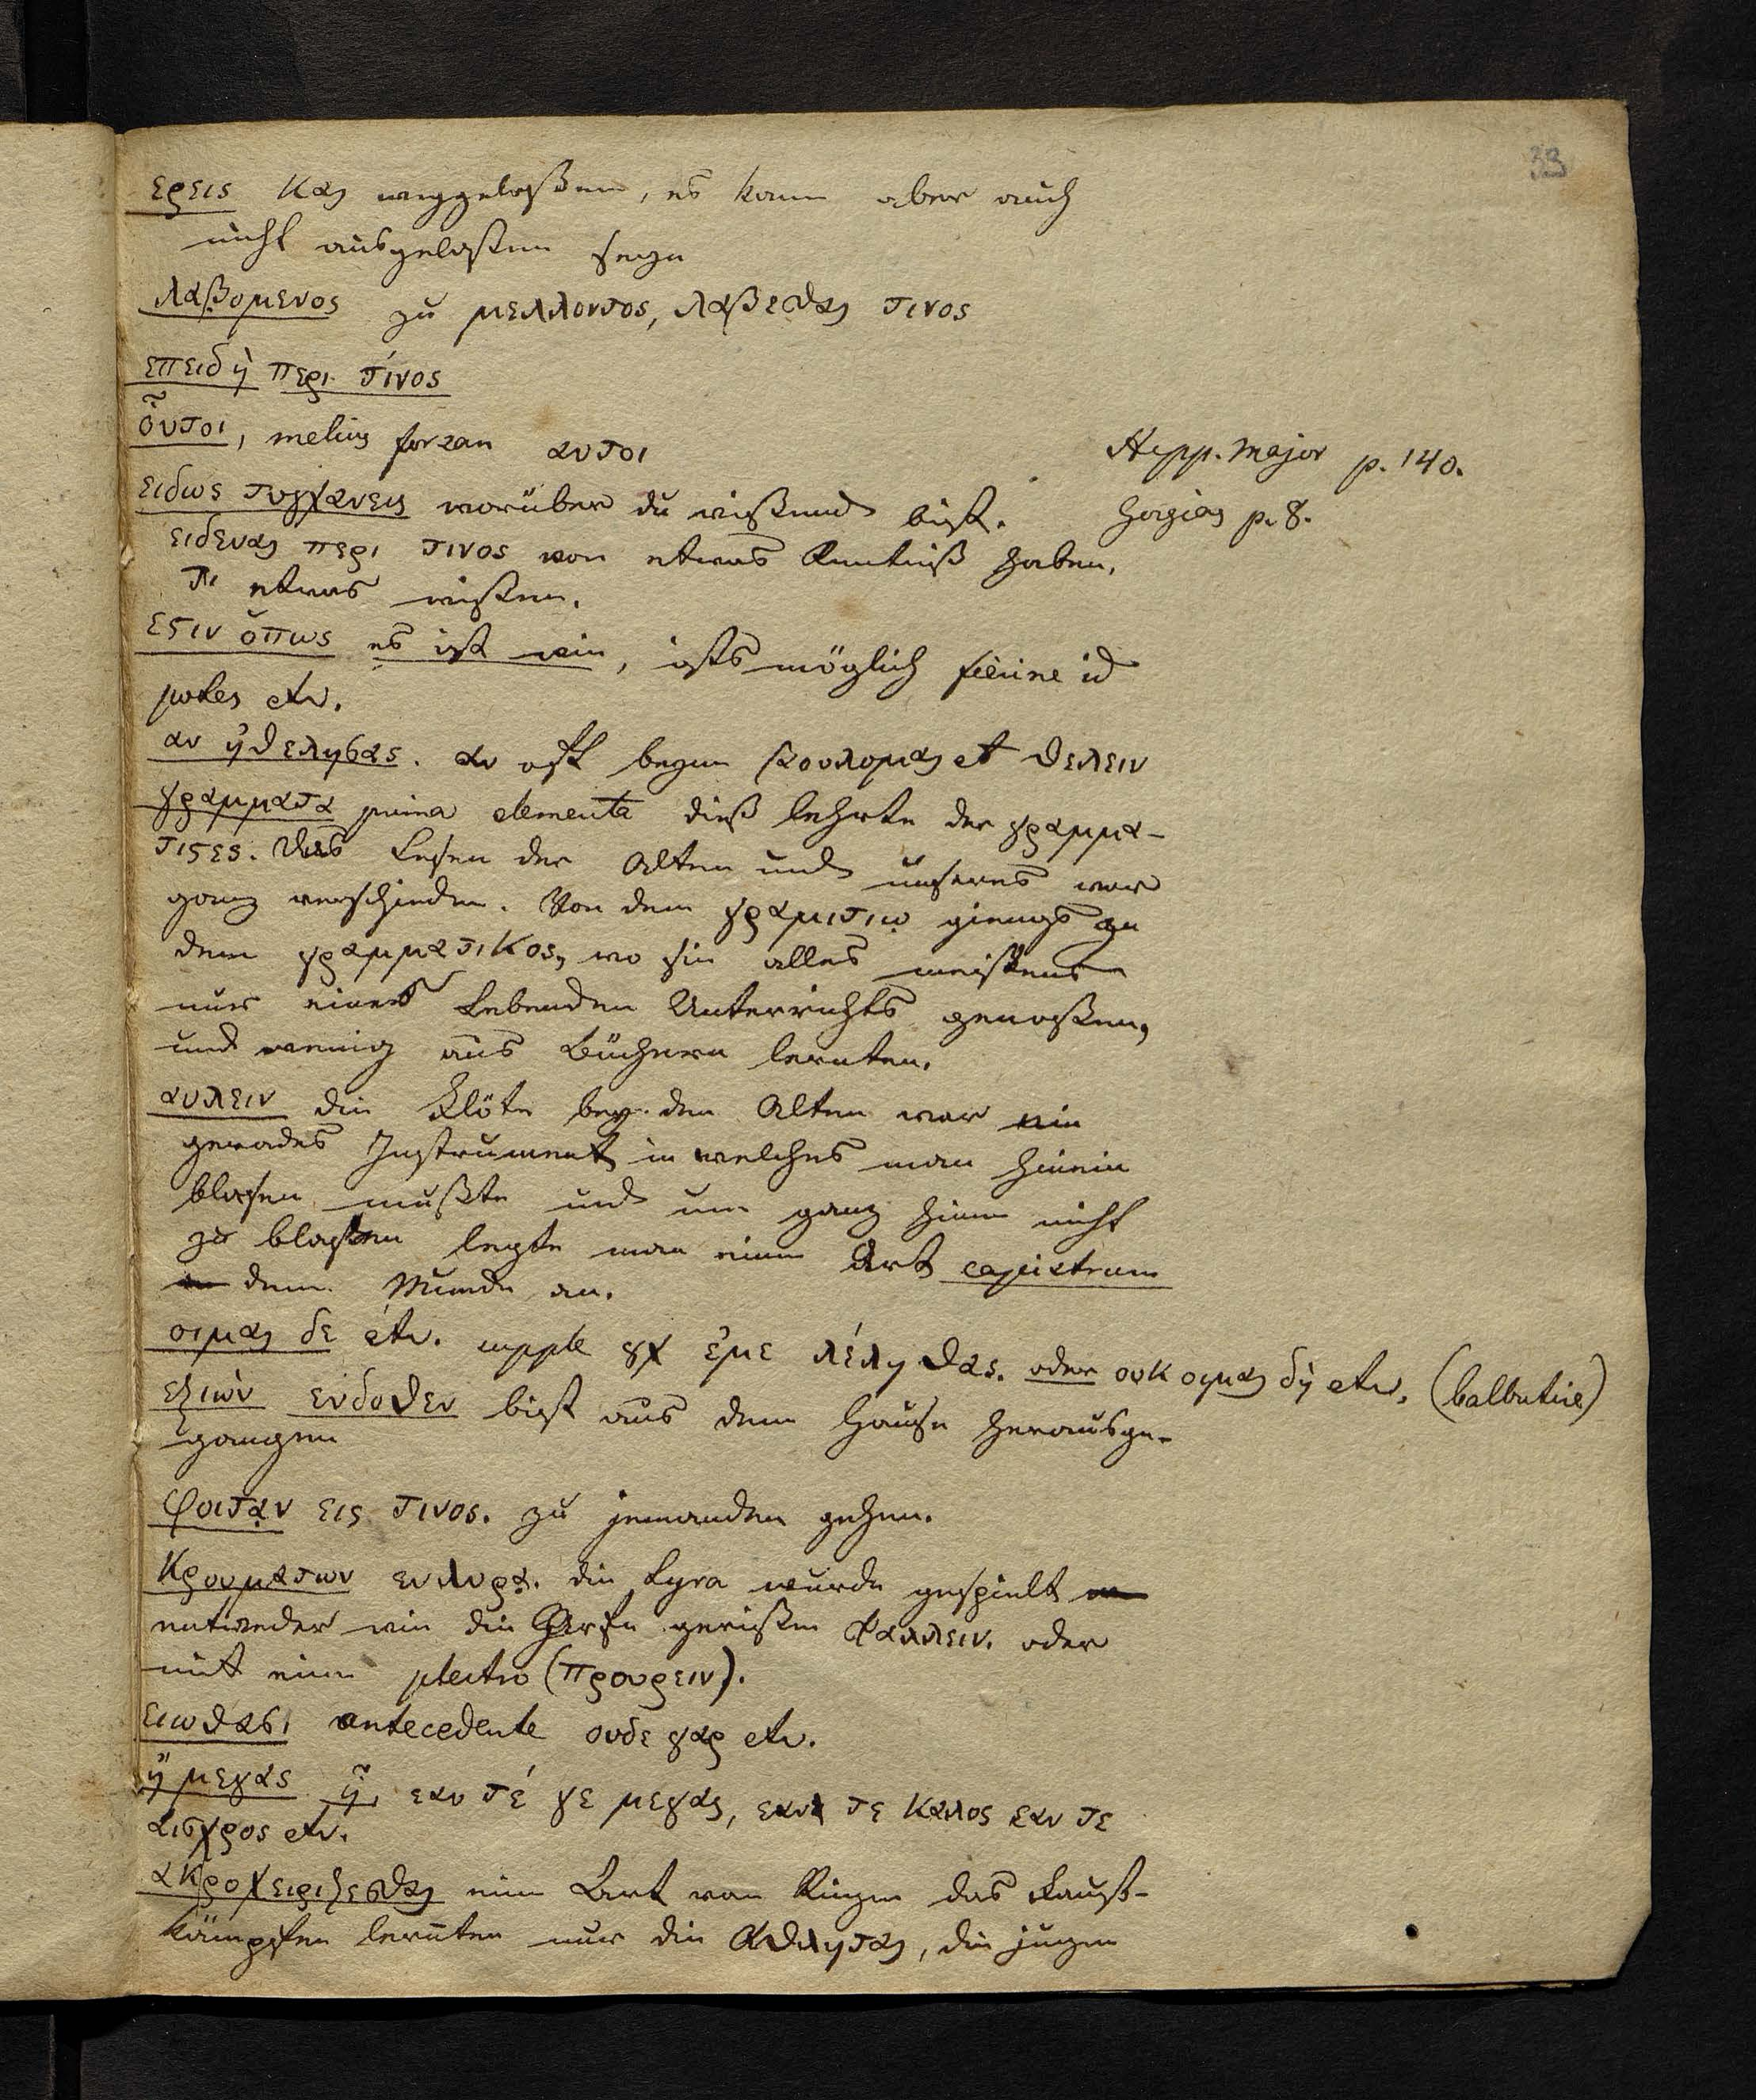 33
ερεις και weggelaßen, es kann aber auch
nicht ausgelaßen seyn
λαβομενος zu μελλοντος, λαβεσθαι τινος
επειδὴ περι τίνος
οὗτοι, melius forsan αυτοι
Hipp. Major p. 140.
ειδως τυγχανεις worüber du wißend bist.
Gorgias p. 8.
ειδεναι περι τινος von etwas Kentniß haben.
τι etwas wißen.
εστιν ὅπως es ist wie, ists möglich
potes etc.
αν ἠθελησας. αν ist beym βουλομαι et θελειν
γραμματα prima elementa dieß lehrte der γραμμα-
τιστες. Das Lesen der Alten und unseres war
ganz verschieden. Von dem γραμιστιῳ giengs zu
dem γραμματικος, wo sie alles meistens
nur eines Lebenden Unterrichts genoßen,
und wenig aus Büchern lernten.
αυλειν die Flöte bey den Alten war ein
gerades Instrument in welches man hinein
blasen mußte und um ganz hinein nicht
zu blasen legte man eine Art capistrum
dem Munde an.
οιμαι δε etc. supple ἐμε λέληθας. oder ουκ οιμαι δὴ etc. (balbutire)
εξιὼν ενδοθεν bist aus dem Hause herausge-
gangen
φοιταν εις τινος. zu jemanden gehen.
κρουματων εν λυρᾳ. die Lyra wurde gespielt
entweder wie die Harfe gerißen ψαλλειν. oder
mit einem plectro (προυρειν).
ειωθασι antecedente ουδε γαρ etc.
ἢ μεγας ᾖ, εαν τέ γε μεγας, εαν τε καλος εαν τε
αισχρος etc.
ακροχειριζεσθαι eine Art von Ringen das Faust-
kämpfen lernten nur die Αθληται, die jungen